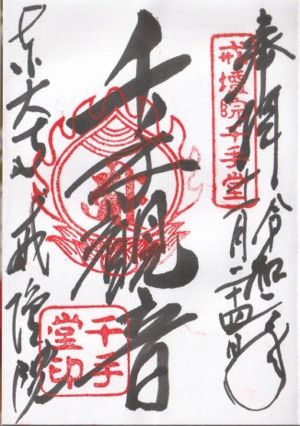 奉拝 令和二年
月二十四日
戒壇院千手堂
千手觀音
東大寺 戒壇院
千手
堂印